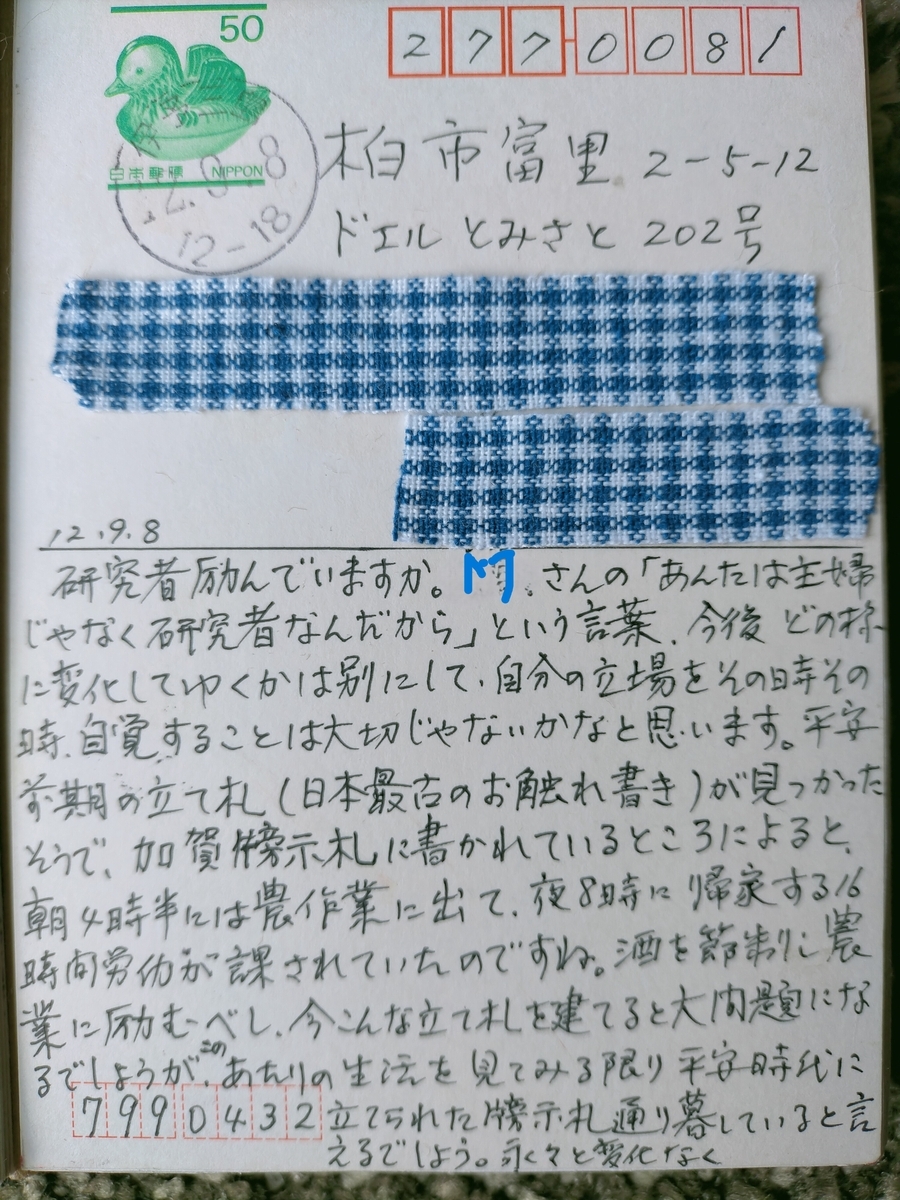 50
日本郵便 NIPPON
12.9.8
12-18
2770081
柏市富里 2-5-12
ドエルとみさと 202号
12.9.8
研究者励んでいますか。 さんの「あんたは主婦
じゃなく研究者なんだから」という言葉、今後どの様
に変化してゆくかは別にして、自分の立場をその時その
時、自覚することは大切じゃないかなと思います。平安
前期の立て札(日本最古のお触れ書き)が見つかった
そうで、加賀牓示札に書かれているところによると、
朝4時半には農作業に出て、夜8時に帰家する16
時間労働が課されていたのですね。酒を節制し農
業に励むべし、今こんな立て札を建てると大問題にな
るでしょうが、このあたりの生活を見てみる限り平安時代に
7990432 立てられた牓示札通り暮していると言
えるでしょう。永々と変化なく